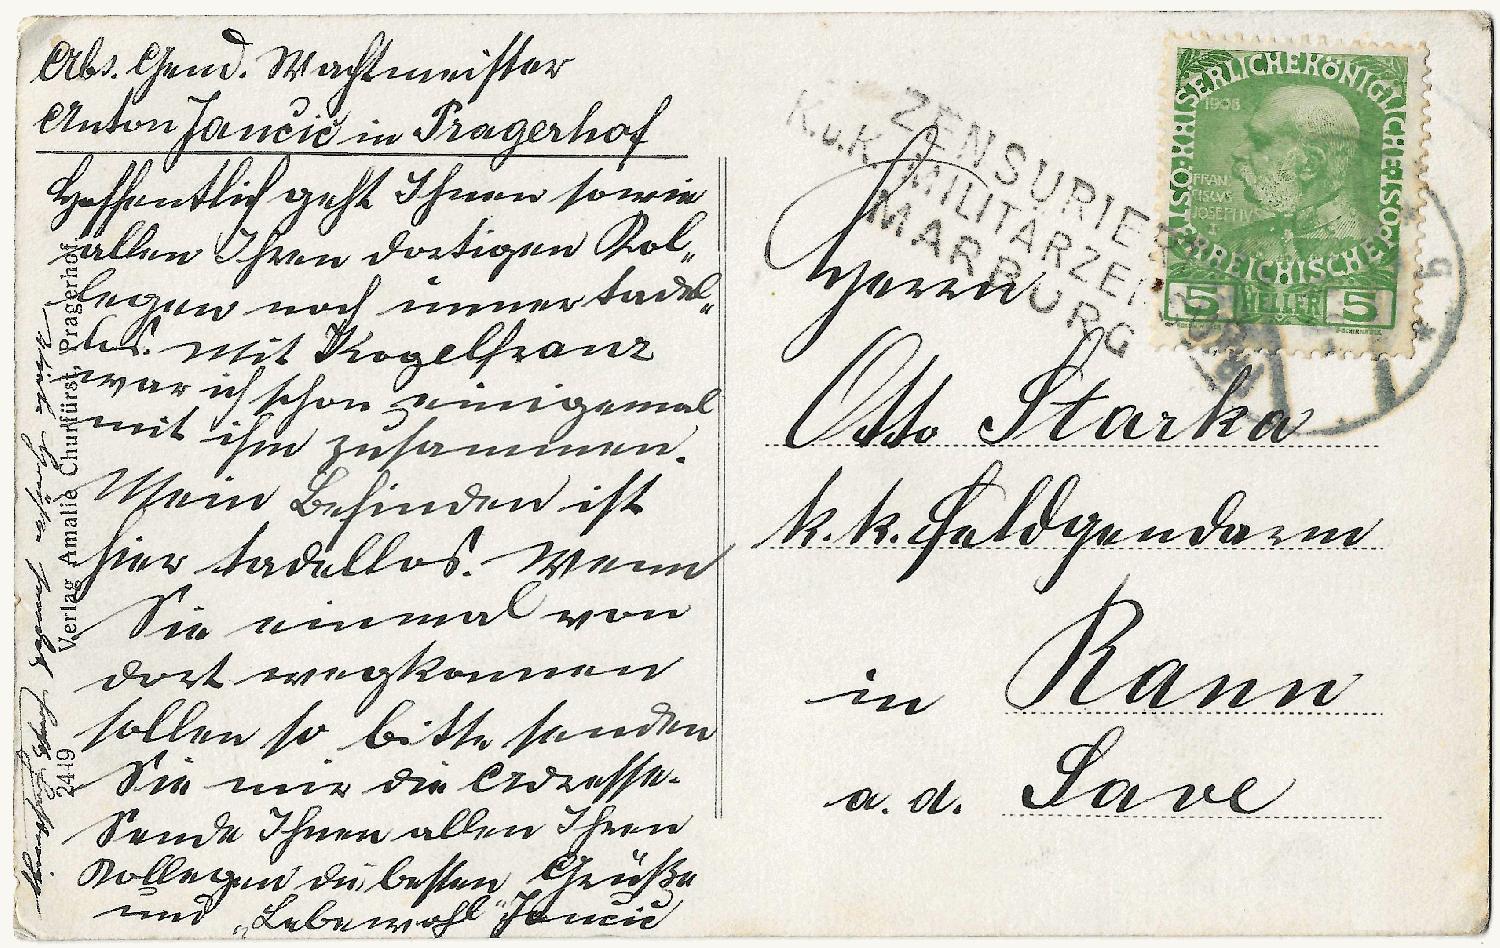 Abs. Gend. Wachtmeister
Anton Jančić in Pragerhof
Hoffentlich geht Ihnen sowie
allen Ihren dortigen Kol„
legen noch immer tadel„
los. Mit Kogelfranz
war ich schon einigemal
mit ihm zusammen.
Mein Befinden ist
hier tadellos. Wenn
Sie einmal von
dort wegkommen
sollen so bitte senden
Sie mir die Adresse.
Sende Ihnen allen Ihren
Kollegen die besten Grüße
und „Lebewohl" Jančić
Viele Grüße sendet
Verlag Amalie Churfürst, Pragerhof
2449
ZENSURIERT
K.u.K. MILITÄRZENSUR
MARBURG
KAISERLICHE KÖNIGLICHE ÖSTERREICHISCHE POST
1908
FRAN
CISCVS
JOSEPHVS
I
5 HELLER 5
9
Herrn
Otto Starka
k. k. Feldgendarm
in Rann
a. d. Save